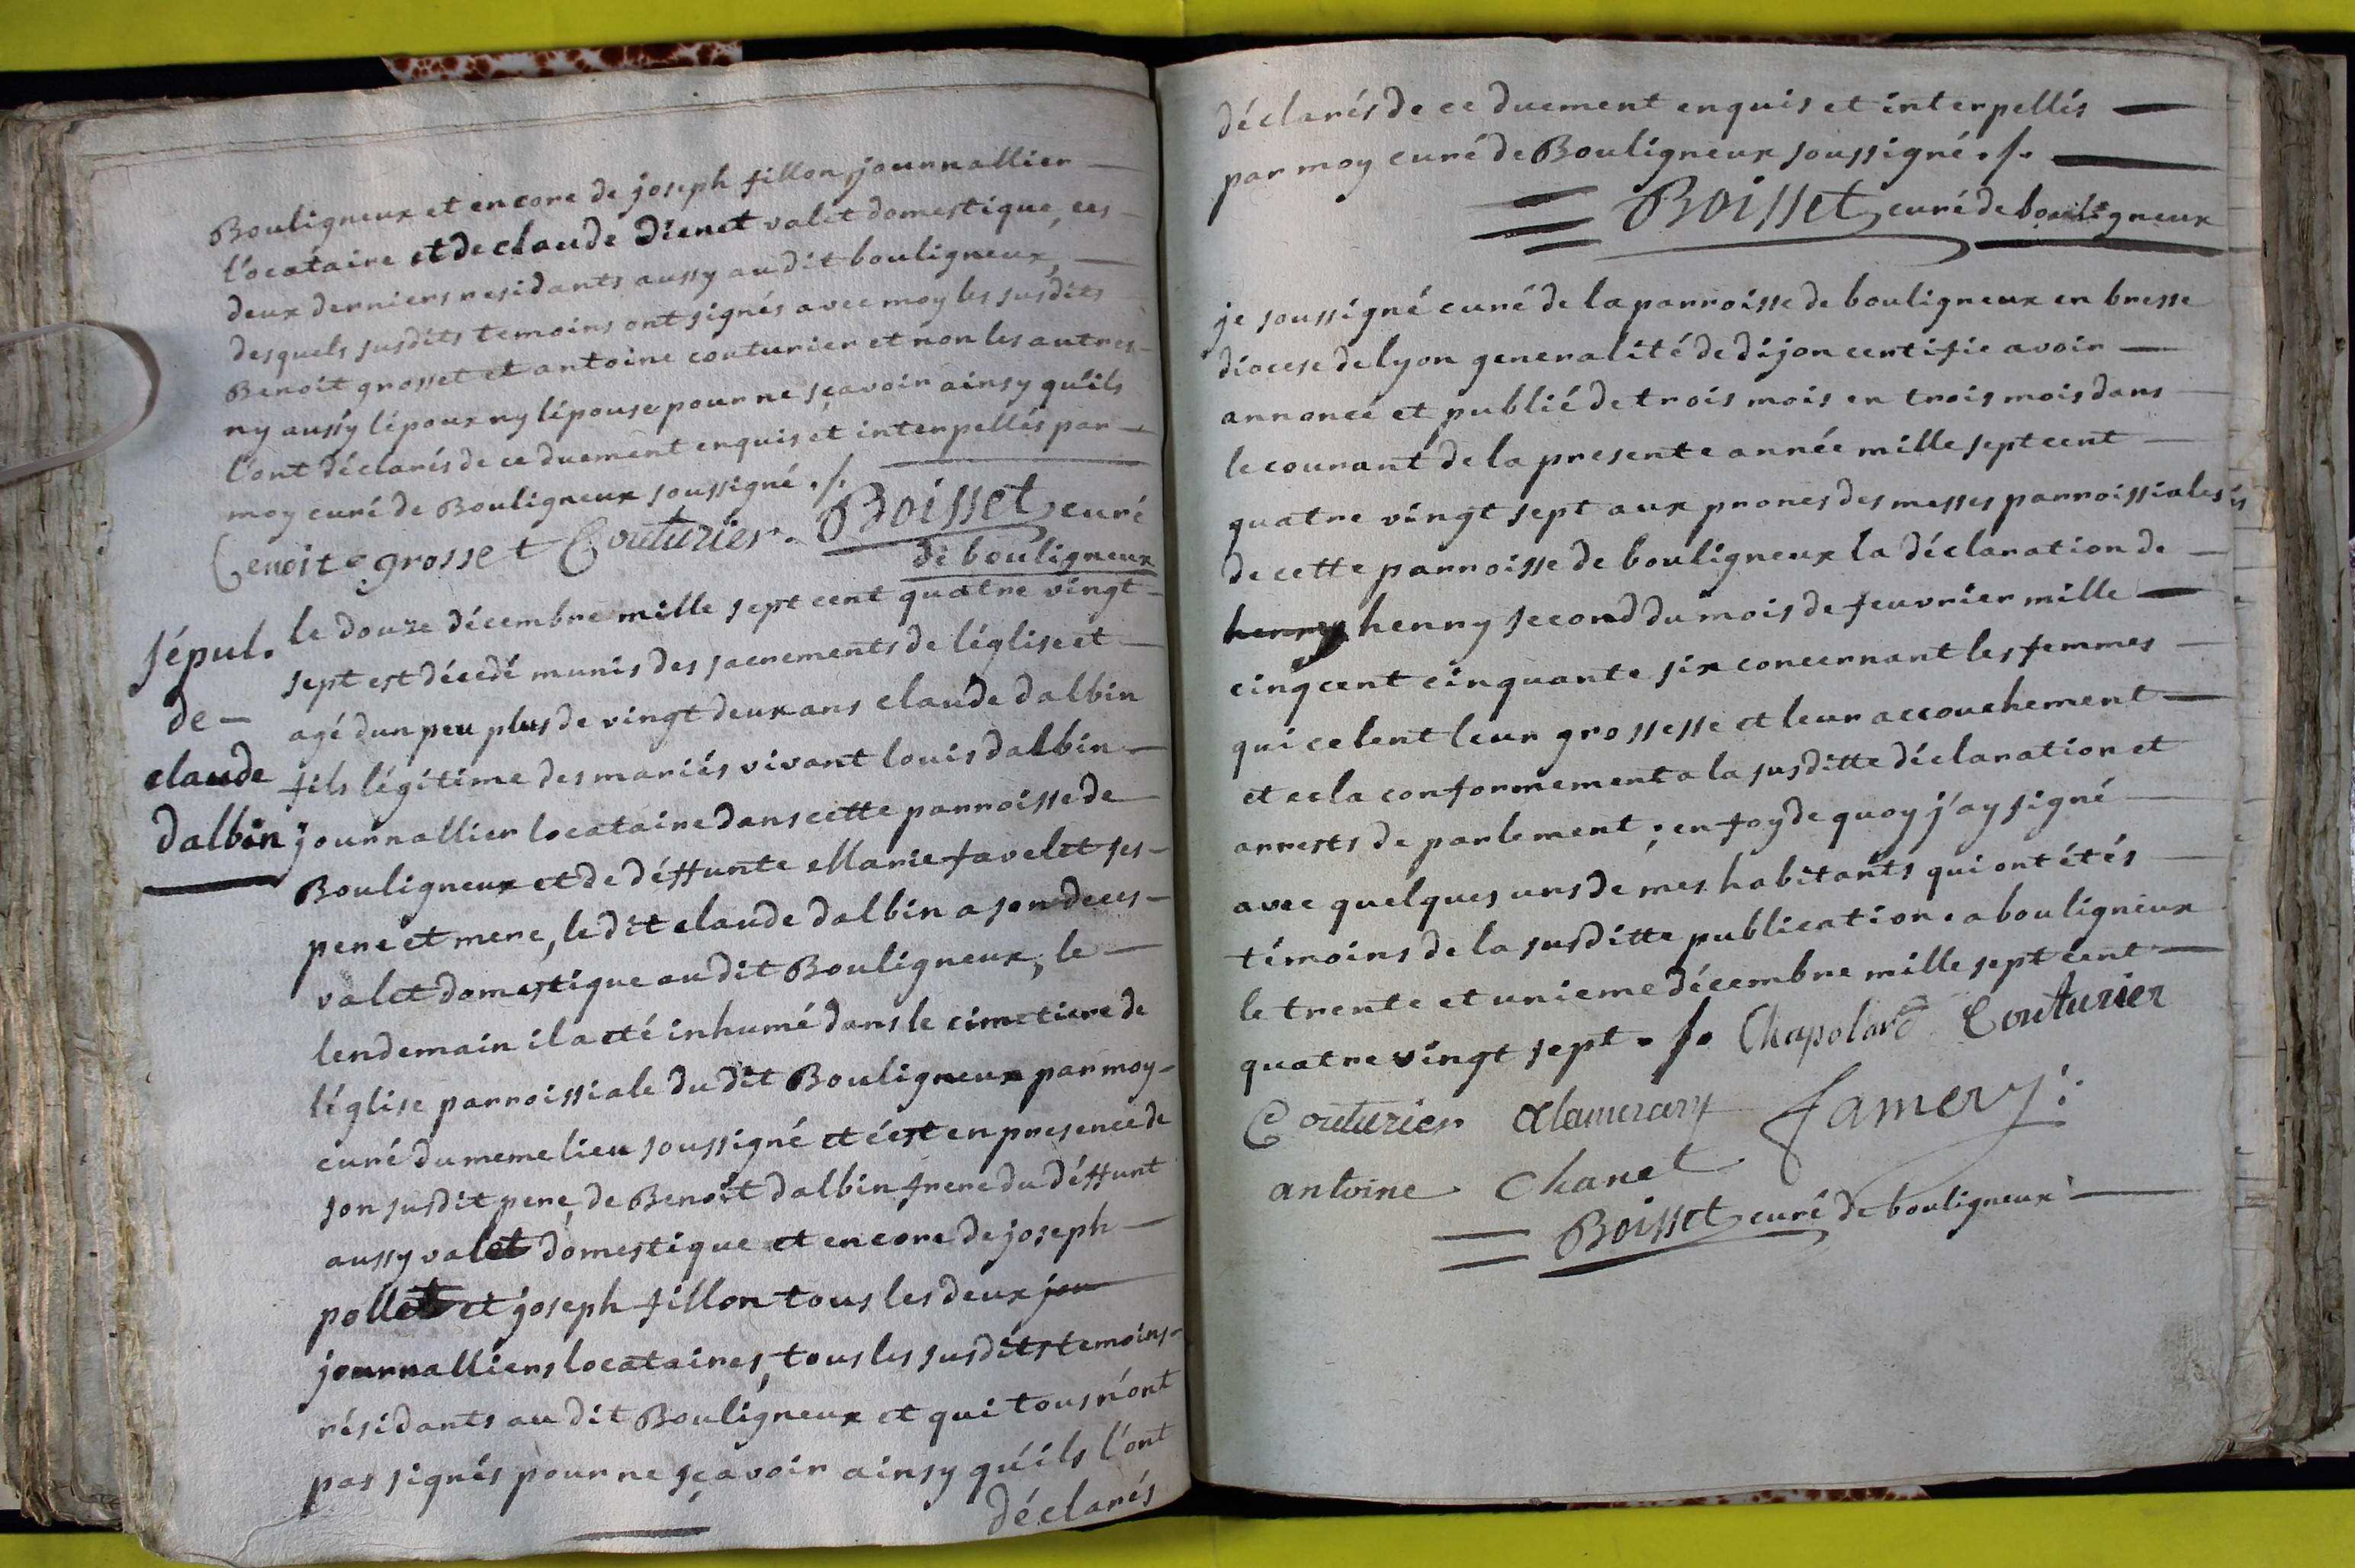 Bouligneux et encore de joseph fillon journallier
locataire et de claude Dienet valet domestique, ces
deux derniers residants aussy au dit bouligneux,
desquels susdits temoins ont signés avec moy les susdits
Benoit grosset et antoine couturier et non les autres
ny aussy l'époux ny l'épouse pour ne sçavoir ainsy qu'ils
l'ont déclarés de ce duement enquis et interpellés par
moy curé de Bouligneux soussigné ./.
Benoit grosset Couturier. Boisset curé
de bouligneux
sépul.
de
claude
dalbin
le douze décembre mille sept cent quatre vingt
sept est décedé munis des sacrements de l'église et
agé dun peu plus de vingt deux ans claude dalbin
fils légitime des mariés vivant louis dalbin
journallier locataire dans cette parroisse de
Bouligneux et de déffunte Marie favelet ses
pere et mere, le dit claude dalbin a son deces
valet domestique au dit Bouligneux, le
lendemain il a eté inhumé dans le cimetiere de
l'église parroissiale du dit Bouligneux par moy
curé du meme lieu soussigné et c'est en presence de
son susdit pere, de Benoit dalbin frere du déffunt
aussy valet domestique et encore de joseph
pollet et joseph fillon tous les deux jou
journalliers locataires, tous les susdits temoins
résidants au dit Bouligneux et qui tous n'ont
pas signés pour ne sçavoir ainsy qu'ils l'ont
déclarés
déclarés de ce duement enquis et interpellés
par moy curé de Bouligneux soussigné ./.
Boisset curé de bouligneux
je soussigné curé de la parroisse de bouligneux en bresse
diocese de lyon generalité de dijon certifie avoir
annoncé et publié de trois mois en trois mois dans
le courant de la presente année mille sept cent
quatre vingt sept aux prones des messes parroissiales
de cette parroisse de bouligneux la déclaration de
henry henry second du mois de feuvrier mille
cinq cent cinquante six concernant les femmes
qui celent leur grossesse et leur accouchement
et cela conformement a la susditte déclaration et
arrests de parlement ; en foy de quoy j'ay signé
avec quelques uns de mes habitants qui ont étés
témoins de la susditte publication. a bouligneux
le trente et unieme décembre mille sept cent
quatre vingt sept ./. Chapolard Couturier
Couturier Alamercery Jamery
antoine Chanel
Boisset curé de bouligneux